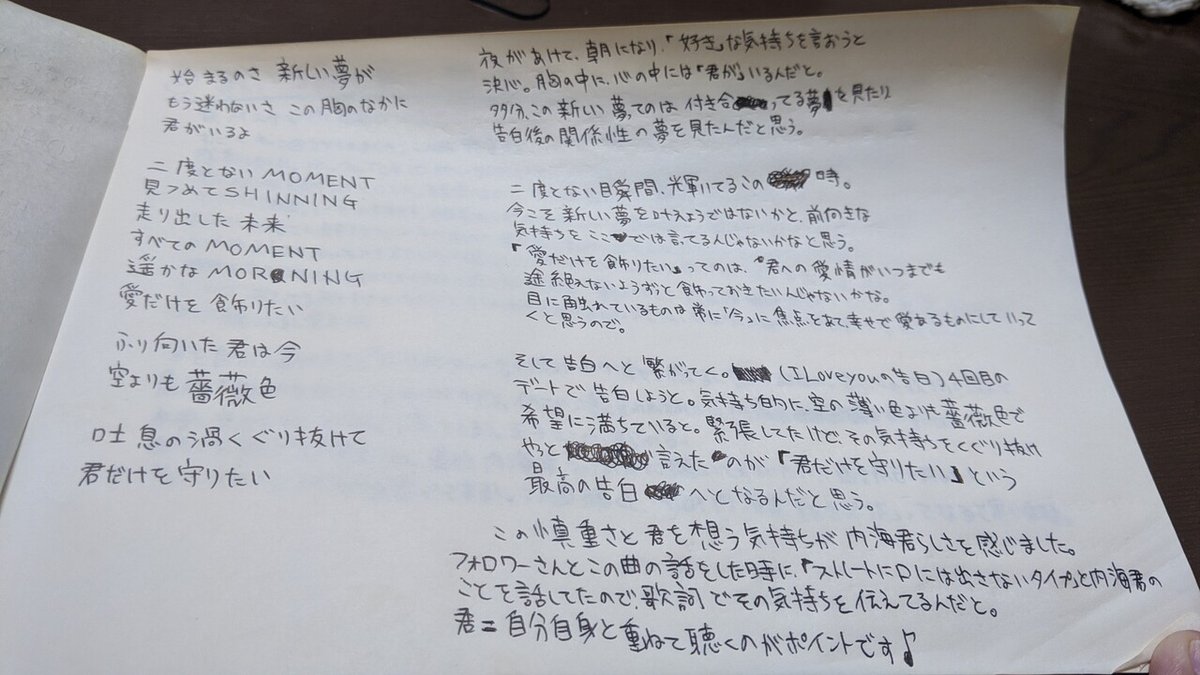 始まるのさ 新しい夢が
もう迷わないさ この胸のなかに
君がいるよ
二度とないMOMENT
見つめてSHINNING
走り出した未来
すべてのMOMENT
遥かなMORNING
愛だけを飾りたい
ふり向いた君は今
空よりも薔薇色
吐息の渦くぐり抜けて
君だけを守りたい
夜があけて、朝になり、「好き」な気持ちを言おうと
決心。胸の中に、心の中には「君が」いるんだと。
多分、この新しい夢ってのは付き合ってる夢を見たり
告白後の関係性の夢を見たんだと思う。
二度とない瞬間、光輝いてるこの時。
今こそ新しい夢を叶えようではないかと、前向きな
気持ちをここでは言ってるんじゃないかなと思う。
『愛だけを飾りたい』ってのは、『君への愛情がいつまでも
途絶えないようずっと飾っておきたいんじゃないかな。
目に触れているものは常に「今」に焦点をあて、幸せで愛あるものにしていって
くと思うので。
そして告白へと繋がってく。(I Love youの告白)4回目の
デートで告白しようと。気持ち的に、空の薄い色よりも薔薇色で
希望に満ちていると。緊張してたけど、その気持ちをくぐり抜け
やっと言えたのが『君だけを守りたい』という
最高の告白へとなるんだと思う。
この慎重さと君を想う気持ちが内海君らしさを感じました。
フォロワーさんとこの曲の話をした時に、『ストレートに口には出さないタイプ』と内海君の
ことを話してたので、歌詞でその気持ちを伝えてるんだと。
君=自分自身と重ねて聴くのがポイントです♪